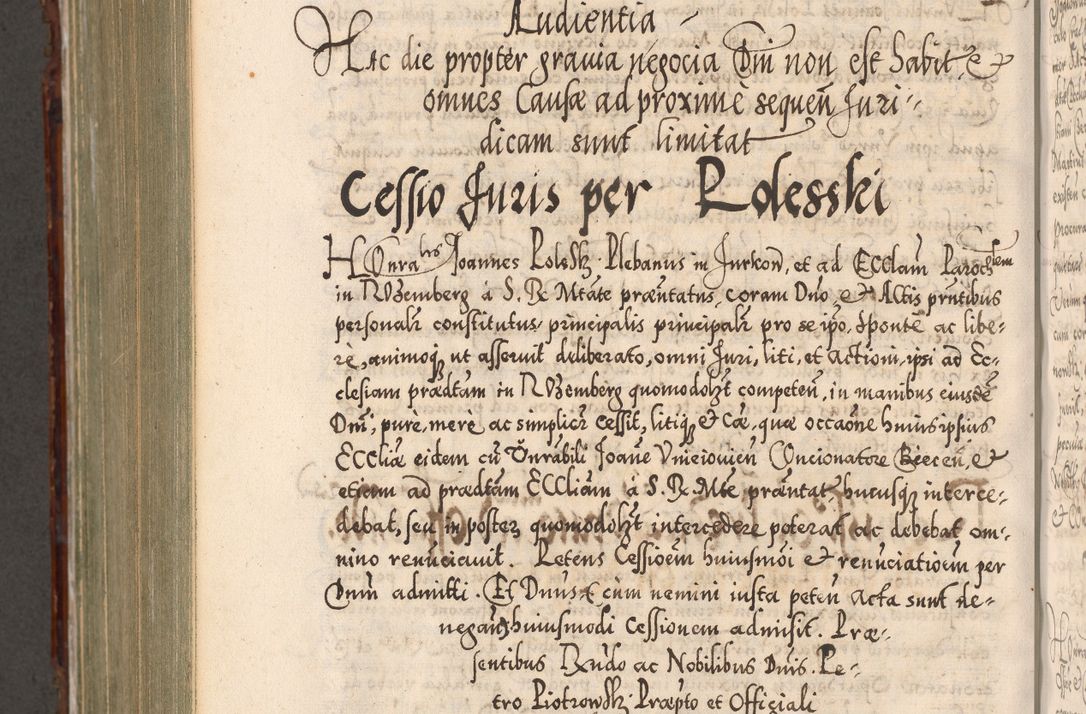 Audientia
Hac die propter gravia negocia Dni non est habit, et
omnes Causæ ad proximè sequen Juri-
dicam sunt limitat
Cessio Juris per Rolesski
HOnralis Joannes Rolesk Plebanus in Jurkow, et ad Ecclam Parochlem
in Rzemberg à S. R. Mtate præntatus, coram Dno, et Actis prntibus
personalr constitutus, principalis principalr pro se ipo, sponte ac libe-
rè, animoq ut asseruit deliberato, omni Juri, liti, et actioni, ipsi ad Ec-
clesiam prædtam in Rzemberg quomodolzt competen, in manibus eiusdē
Dni, purè, merè ac simplicr cessit, litiq et cæ, quæ occaone huius ipsius
Eccliæ eidem cū Onrabili Joane Concionatore Beecen, et
etiam ad prædtam Eccliam à S. R. Mte præntat hucusq interce-
debat, seu in poster quomodolzt intercedere poterat ac debebat om-
nino renūciavit. Petens Cessioem huiusmoi et renunciatioem per
Dnum admitti. Et Dnus cum nemini iusta peten acta sunt de-
negan huiusmodi Cessionem admisit. Præ-
sentibus Rndo ac Nobilibus Dnis. Pe-
tro Piotrowsk Præpto et Officiali